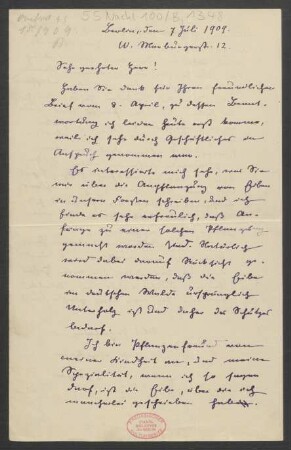 Berlin, den 7 Juli 1909.
W. Marburgerstr. 12.
Sehr geehrter Herr!
Haben Sie Dank für Ihren freundlichen
Brief vom 8. April, zu dessen Beant-
wortung ich leider heute erst komme,
weil ich sehr durch Geschäftliches in
Anspruch genommen war.
Es interessierte mich sehr, was Sie
mir über die Anpflanzung von Eiben
in unsern Forsten schreiben, und ich
finde es sehr erfreulich, daß An-
fänge zu einer solchen Pflanzung
gemacht worden sind. Natürlich
wird dabei darauf Rücksicht ge-
nommen werden, daß die Eibe
im deutschen Walde ursprünglich
Unterholz ist und daher des Schutzes
bedarf.
Ich bin Pflanzenfreund von
meiner Kindheit an, und meine
Spezialität, wenn ich so sagen
darf, ist die Eibe, über die ich
mancherlei geschrieben habe.